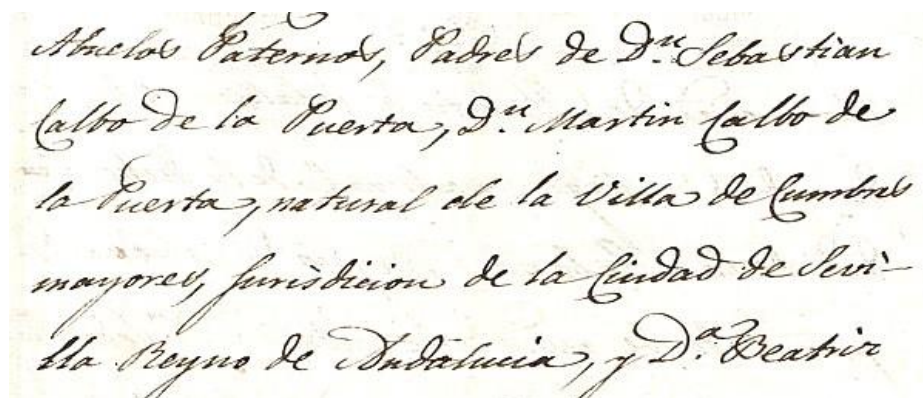 Abuelos Paternos, Padres de D.n Sebastian
Calbo de la Puerta, D.n Martin Calbo de
la Puerta, natural de la Villa de Cumbres
mayores, Jurisdicion de la Ciudad de Sevi-
lla Reyno de Andalucia, y D.a Beatriz